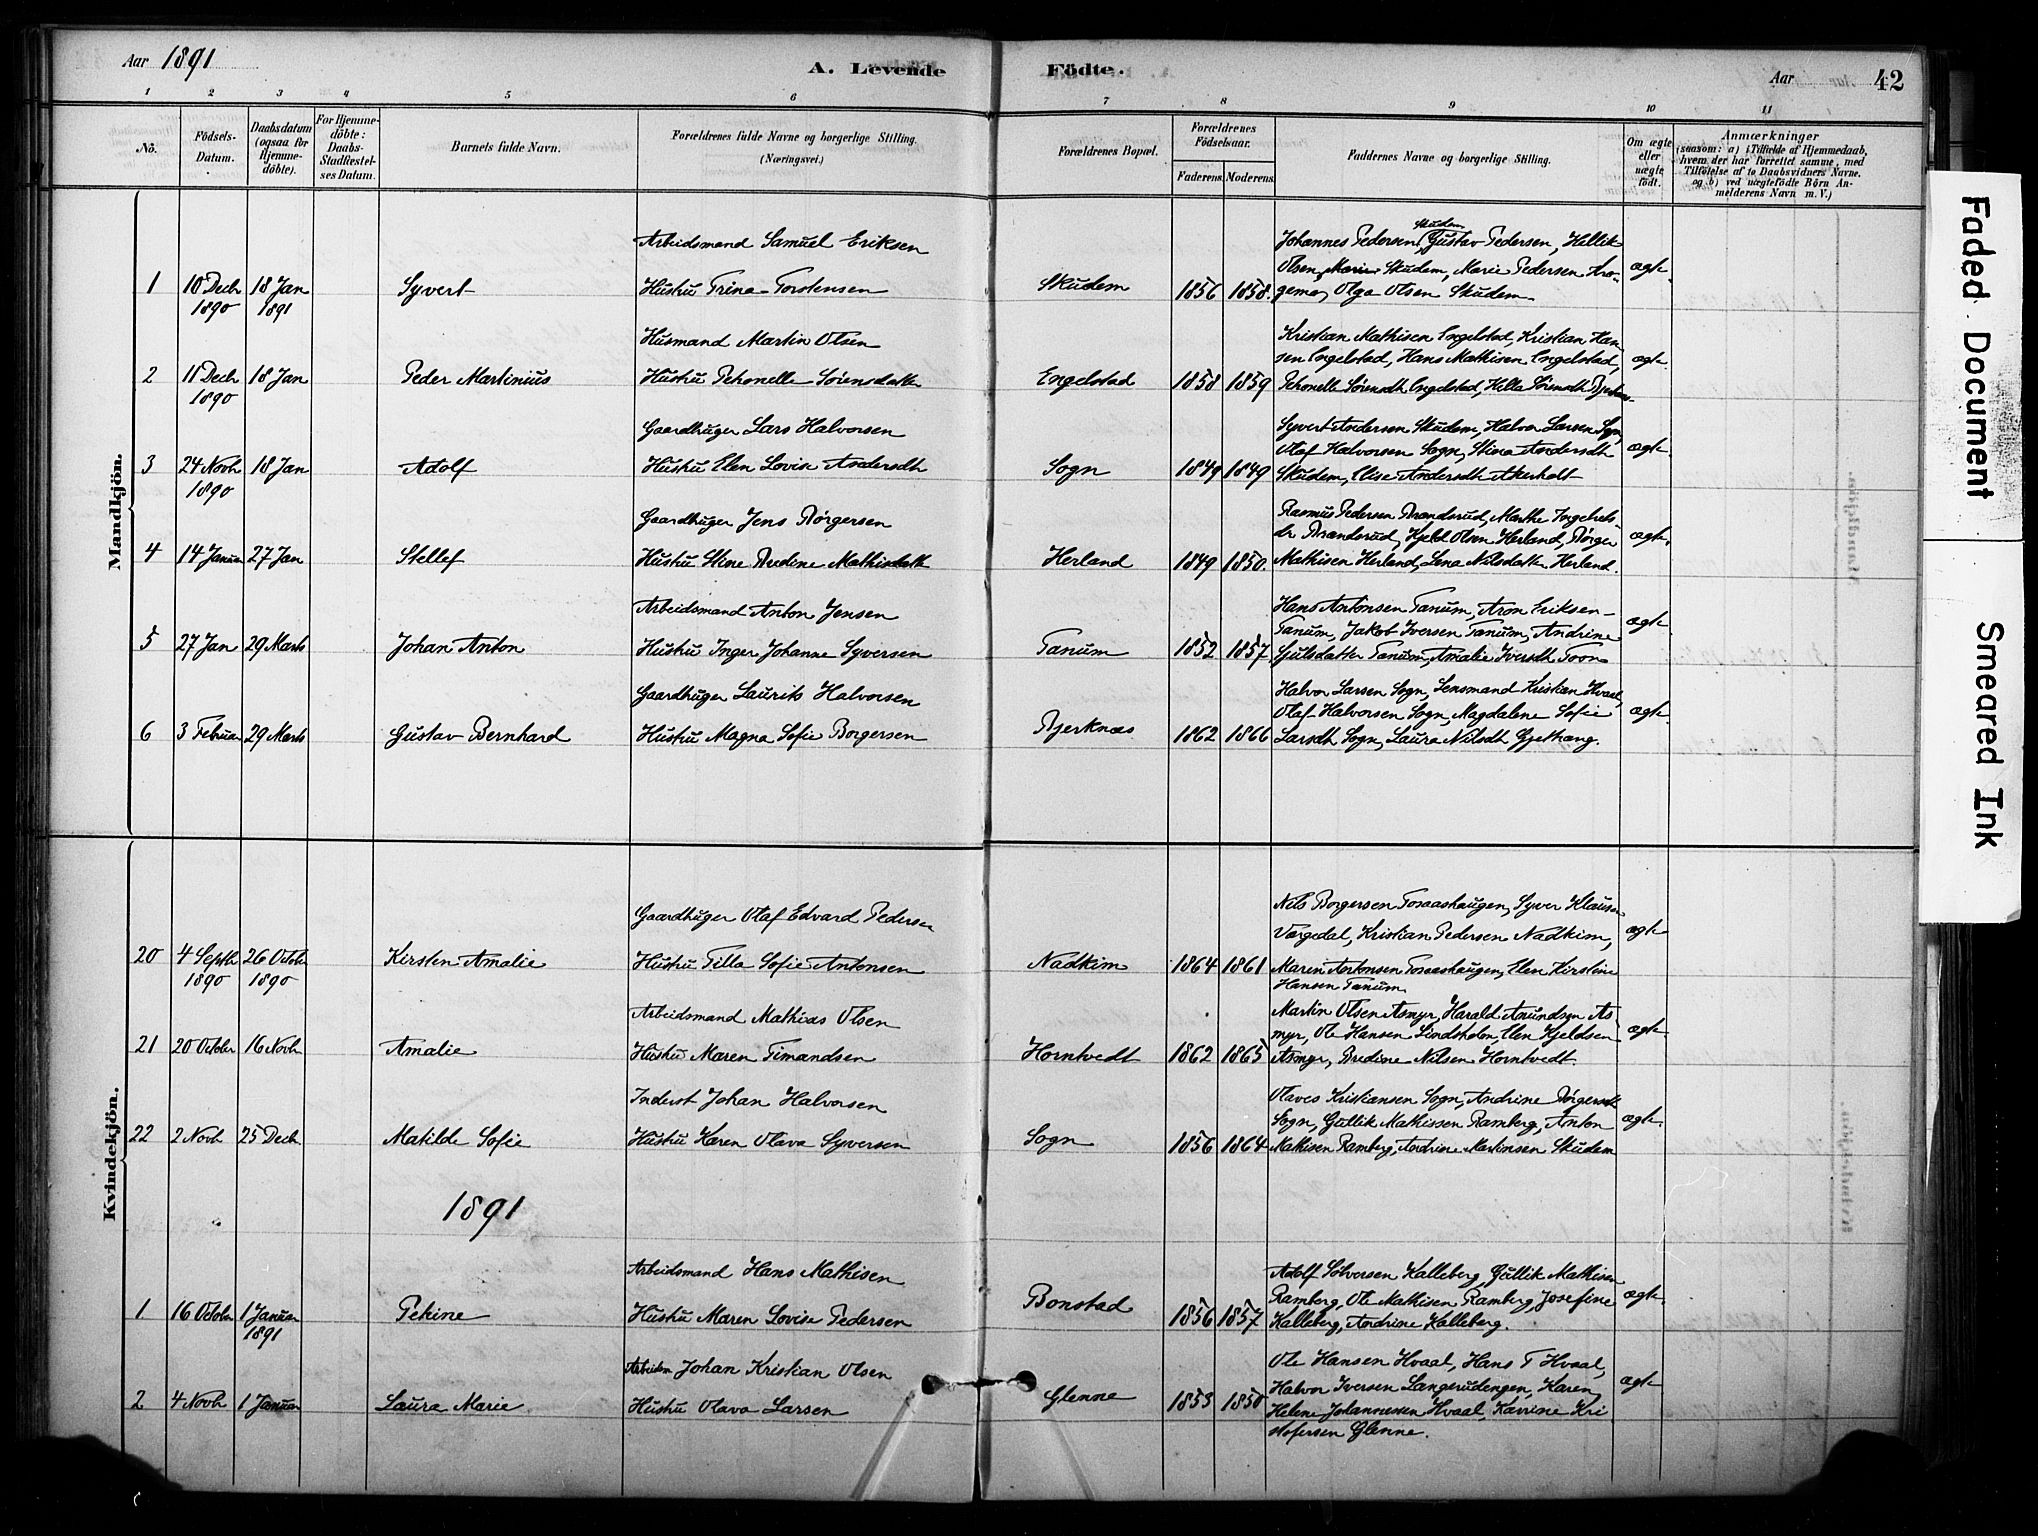 Aar 1891
A. Levende Fødte.
Aar 42
1 2 3 4 5 6 7 8 9 10 11
No.
Födsels-Datum.
Daabsdatum (ogsaa for Hjemme-döbte).
For Hjemme-döbte: Daabs-Stadfæstel-ses Datum.
Barnets fulde Navn.
Forældrenes fulde Navne og borgerlige Stilling. (Næringsvei.)
Forældrenes Bopæl.
Forældrenes Födselsaar.
Faderens. Moderens.
Faddernes Navne og borgerlige Stilling.
Om ægte eller uægte födt.
Anmærkninger
(saasom: a) i Tilfælde af Hjemmedaab, hvem der har forrettet samme, med Tilföielse af to Daabsvidners Navne. og b) ved uægtefödte Börn An-melderens Navn m. V.)
Mandkjön.
Arbeidsmand Samuel Eriksen
1 10 Decb 1890 18 Jan 1891 Syvert Hustru Trina Torstensen Skudem 1856 1858.
Johannes Pedersen Skudem, Gustav Pedersen, Hellik
Olsen Skudem, Marie Pedersen Aro-
gema, Olga Olsen Skudem
ægte
Husmand Martin Olsen
2 11 Decb 1890 18 Jan Peder Martinius Hustru Petronelle Sörensdatter Engelstad 1858 1859
Kristian Mathisen Engelstad, Kristian Han-
sen Engelstad, Hans Mathisen Engelstad,
Petronelle Sörensdt Engelstad, Hella Sörensdt
ægte
Gaardbruger Lars Halvorsen
3 24 Novb 1890 18 Jan Adolf Hustru Elen Lovise Andersdt Sogn 1849 1849
Syvert Andersen Skudem, Halvor Larsen Sogn,
Olaf Halvorsen Sogn, Stina Andersdt
Skudem, Elise Andersdt Akerholt
ægte
Gaardbruger Jens Börgersen
4 14 Januar 27 Jan Stellef Hustru Stine Bredine Mathisdatter Herland 1849 1850.
Rasmus Pedersen Brandsrud, Marthe Ingebrets-
dr Brandsrud, Kjeld Olsen Herland, Börger
Mathisen Herland, Lena Nilsdatter Herland.
ægte.
Arbeidsmand Anton Jensen
5 27 Jan 29 Marts Johan Anton Hustru Inger Johanne Syversen Tanum 1852 1857
Hans Antonsen Tanum, Aron Eriksen
Tanum, Jakob Iversen Tanum, Andrine
Gulsdatter Tanum, Amalie Iversdt Foon
ægte
Gaardbruger Laurits Halvorsen
6 3 Februar 29 Marts Gustav Bernhard Hustru Magna Sofie Borgersen Bjerknæs 1862 1866
Halvor Larsen Sogn, Lensmand Kristian Hvaal,
Olaf Halvorsen Sogn, Magdalene Sofie
Larsdt Sogn, Laura Nilsdt Gjethang.
ægte
Kvindekjön.
Gaardbruger Olaf Edvard Pedersen
20 4 Septb 1890 26 Octob 1890 Kirsten Amalie Hustru Tilla Sofie Antonsen Nadkim 1864 1861
Nils Borgersen Foraashaugen, Syver Klausen
Vargedal, Kristian Pedersen Nadkim,
Maren Antonsen Foraashaugen, Elen Kirstine
Hansen Tanum
ægte
Arbeidsmand Mathias Olsen
21 20 October 16 Novb Amalie Hustru Maren Timandsen Horntvedt 1862 1865
Martin Olsen Asmyr, Harald Amundsen As
myr, Ole Hansen Lindsholm, Elen Kjeldsen
Asmyr, Bredine Nilsen Horntvedt.
ægte
Inderst Johan Halvorsen
22 2 Novb 25 Decb Matilde Sofie Hustru Karen Olava Syversen Sogn 1856 1864
Olaves Kristiansen Sogn, Andrine Börgersdt
Sogn, Gullik Mathissen Ramberg, Anton
Mathisen Ramberg, Andrine Martinsen Skudem
ægte.
1891
Arbeidsmand Hans Mathisen
1. 16 October 1 Januar 1891 Petrine Hustru Maren Lovise Pedersen Bonstad 1856 1857
Adolf Sölversen Kalleberg, Gullik Mathisen
Ramberg, Ole Mathisen Ramberg, Josefine
Kalleberg, Andrine Kalleberg.
ægte.
Arbeidsm Johan Kristian Olsen
2 4 Novb 1 Januar Laura Marie Hustru Olava Larsen Glenne 1853 1850
Ole Hansen Hvaal, Hans T Hvaal,
Halvor Iversen Langerudengen, Karen
Helene Johannesen Hvaal, Katrine Kri
stofersen Glenne.
ægte
Faded Document
Smeared Ink